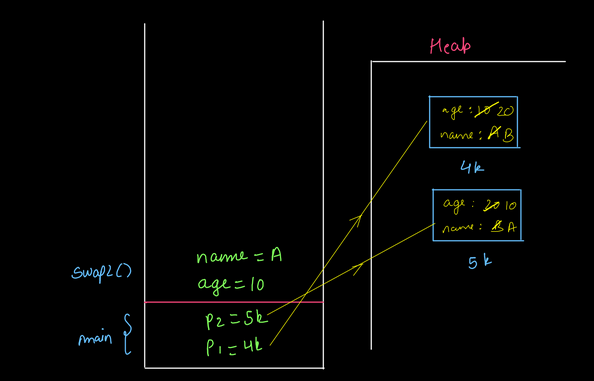 Heap
age : 10 20
name : A B
4k
age : 20 10
name : B A
5k
swap2()
name = A
age = 10
main {
P2 = 5k
P1 = 4k